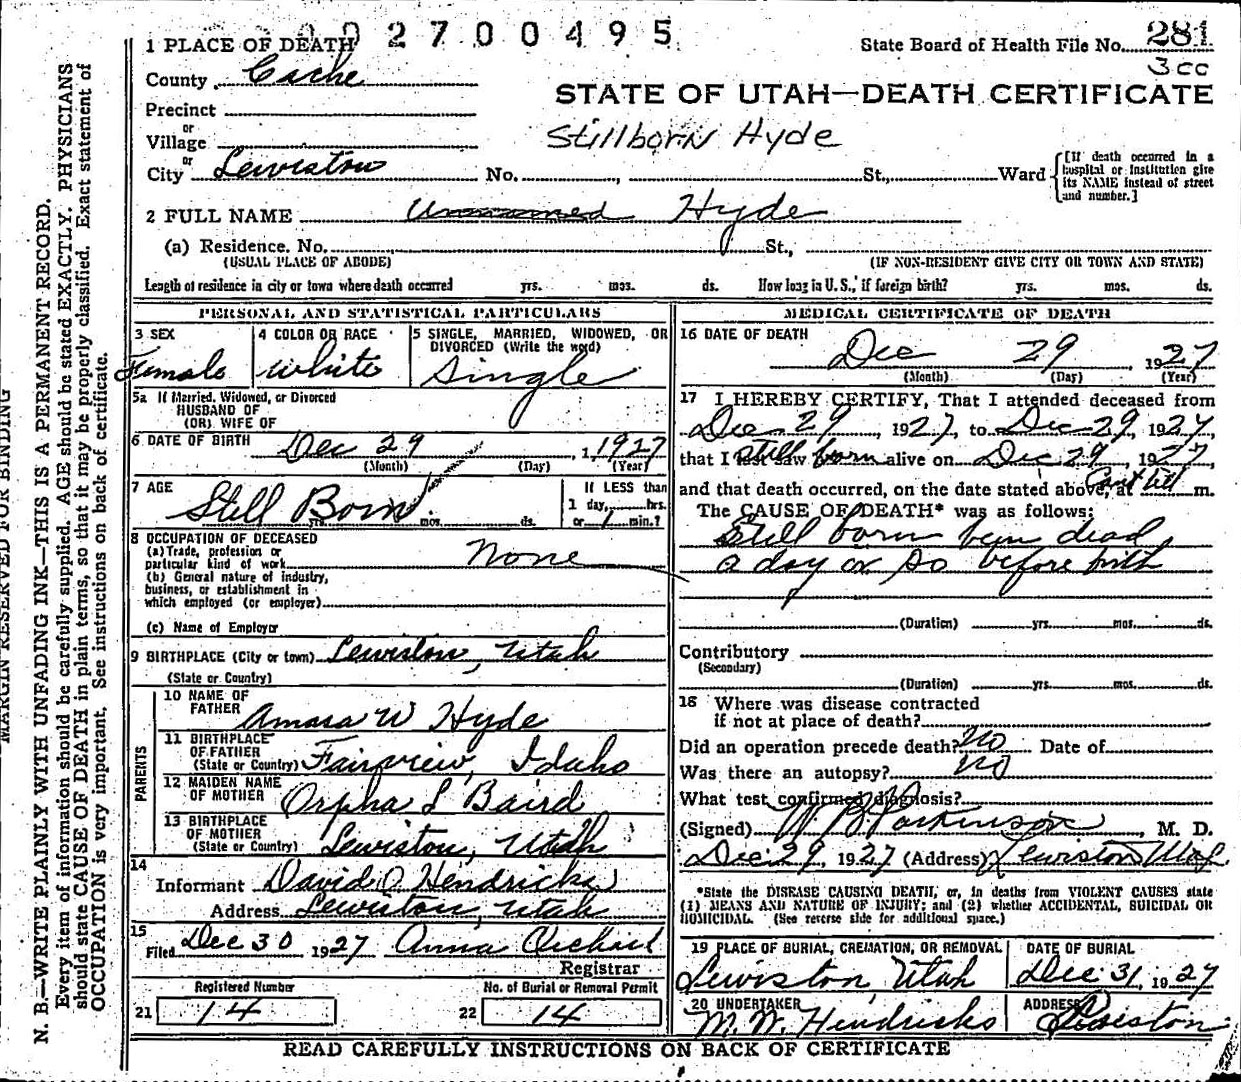 2700495
1 PLACE OF DEATH
State Board of Health File No. 281
3cc
County Cache
STATE OF UTAH—DEATH CERTIFICATE
Precinct
or
Village
Stillborn Hyde
or
City Lewiston No. , St., Ward [If death occurred in a hospital or institution give its NAME instead of street and number.]
2 FULL NAME Unnamed Hyde
(a) Residence. No. St.,
(USUAL PLACE OF ABODE) (IF NON-RESIDENT GIVE CITY OR TOWN AND STATE)
Length of residence in city or town where death occurred yrs. mos. ds. How long in U. S., if foreign birth? yrs. mos. ds.
PERSONAL AND STATISTICAL PARTICULARS
3 SEX
Female
4 COLOR OR RACE
white
5 SINGLE, MARRIED, WIDOWED, OR
DIVORCED (Write the word)
Single
5a If Married, Widowed, or Divorced
HUSBAND OF
(OR) WIFE OF
6 DATE OF BIRTH Dec 29, 1927
(Month) (Day) (Year)
7 AGE
Still Born
yrs. mos. ds.
If LESS than
1 day, hrs.
or min.?
8 OCCUPATION OF DECEASED
(a) Trade, profession or
particular kind of work None
(b) General nature of industry,
business, or establishment in
which employed (or employer)
(c) Name of Employer
9 BIRTHPLACE (City or town) Lewiston, Utah
(State or Country)
PARENTS
10 NAME OF
FATHER Amasa W Hyde
11 BIRTHPLACE
OF FATHER
(State or Country) Fairview, Idaho
12 MAIDEN NAME
OF MOTHER Orpha L Baird
13 BIRTHPLACE
OF MOTHER
(State or Country) Lewiston, Utah
14
Informant David O Hendricks
Address Lewiston, Utah
15
Filed Dec 30 1927 Anna Orchard
Registrar
Registered Number
21 14
No. of Burial or Removal Permit
22 14
MEDICAL CERTIFICATE OF DEATH
16 DATE OF DEATH
Dec 29 1927
(Month) (Day) (Year)
17 I HEREBY CERTIFY, That I attended deceased from
Dec 29, 1927, to Dec 29, 1927,
that I last saw still born alive on Dec 29, 1927,
and that death occurred, on the date stated above, at Cant tell m.
The CAUSE OF DEATH* was as follows:
Still born been dead
a day or so before birth
(Duration) yrs. mos. ds.
Contributory
(Secondary)
(Duration) yrs. mos. ds.
18 Where was disease contracted
if not at place of death?
Did an operation precede death? No Date of
Was there an autopsy? No
What test confirmed diagnosis?
(Signed) W B Parkinson, M. D.
Dec 29, 1927 (Address) Lewiston Utah
*State the DISEASE CAUSING DEATH, or, in deaths from VIOLENT CAUSES state
(1) MEANS AND NATURE OF INJURY; and (2) whether ACCIDENTAL, SUICIDAL OR
HOMICIDAL. (See reverse side for additional space.)
19 PLACE OF BURIAL, CREMATION, OR REMOVAL
Lewiston, Utah
DATE OF BURIAL
Dec 31, 1927
20 UNDERTAKER
M. W. Hendricks
ADDRESS
Lewiston
READ CAREFULLY INSTRUCTIONS ON BACK OF CERTIFICATE
MARGIN RESERVED FOR BINDING
N. B.—WRITE PLAINLY WITH UNFADING INK—THIS IS A PERMANENT RECORD.
Every item of information should be carefully supplied. AGE should be stated EXACTLY. PHYSICIANS
should state CAUSE OF DEATH in plain terms, so that it may be properly classified. Exact statement of
OCCUPATION is very important. See instructions on back of certificate.